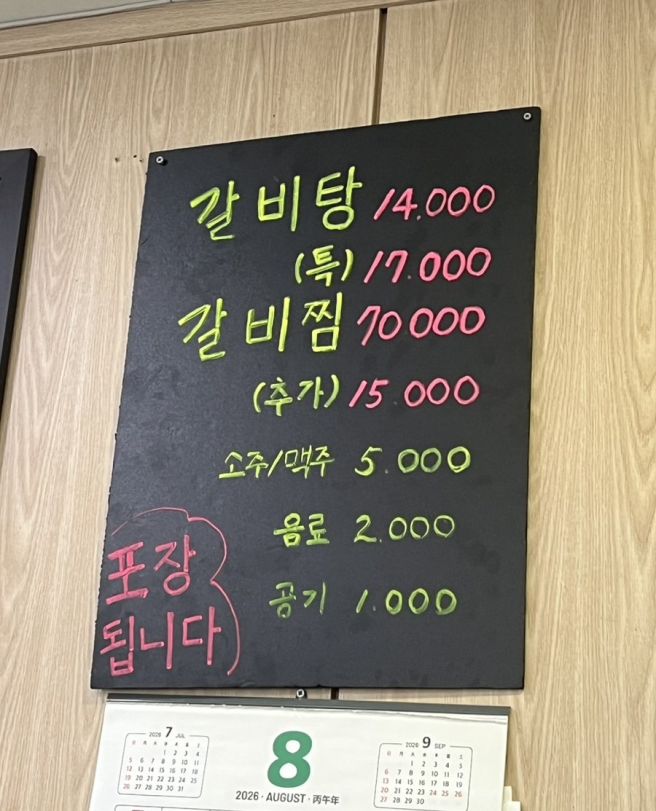 갈비탕 14.000
(특) 17.000
갈비찜 70000
(추가) 15.000
소주/맥주 5.000
음료 2.000
공기 1.000
포장
됩니다
2026 7 JUL
1 2 3 4
5 6 7 8 9 10 11
12 13 14 15 16 17 18
19 20 21 22 23 24 25
26 27 28 29 30 31
8
2026 · AUGUST · 丙午年
2026 9 SEP
1 2 3 4 5
6 7 8 9 10 11 12
13 14 15 16 17 18 19
20 21 22 23 24 25 26
27 28 29 30